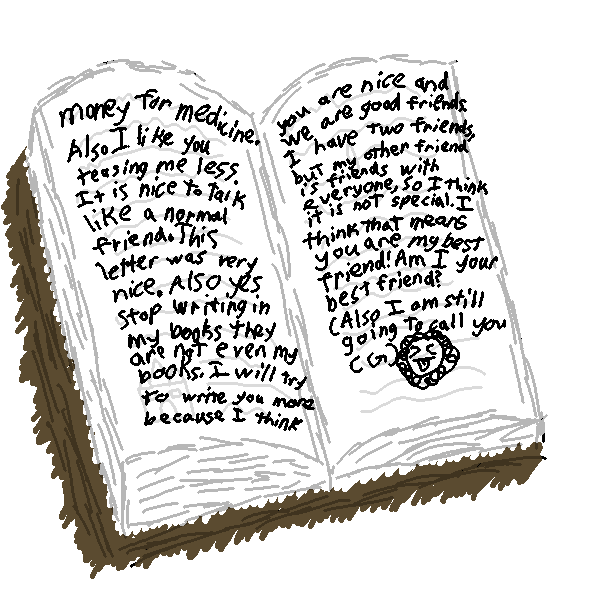 money for medicine.
Also I like you
teasing me less.
It is nice to talk
like a normal
friend. This
letter was very
nice. Also yes
stop writing in
my books they
are not even my
books. I will try
to write you more
because I think
you are nice and
we are good friends
I have two friends,
but my other friend
is friends with
everyone, so I think
it is not special. I
think that means
you are my best
friend! Am I your
best friend?
(Also I am still
going to call you
CG)